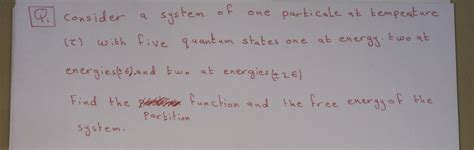 Q. Consider a system of one particale at tempeature
(τ) with five quantum states one at energy. two at
energies(±ϵ),and two at energies(±2ϵ)
Find the function and the free energy of the
Partition
system.